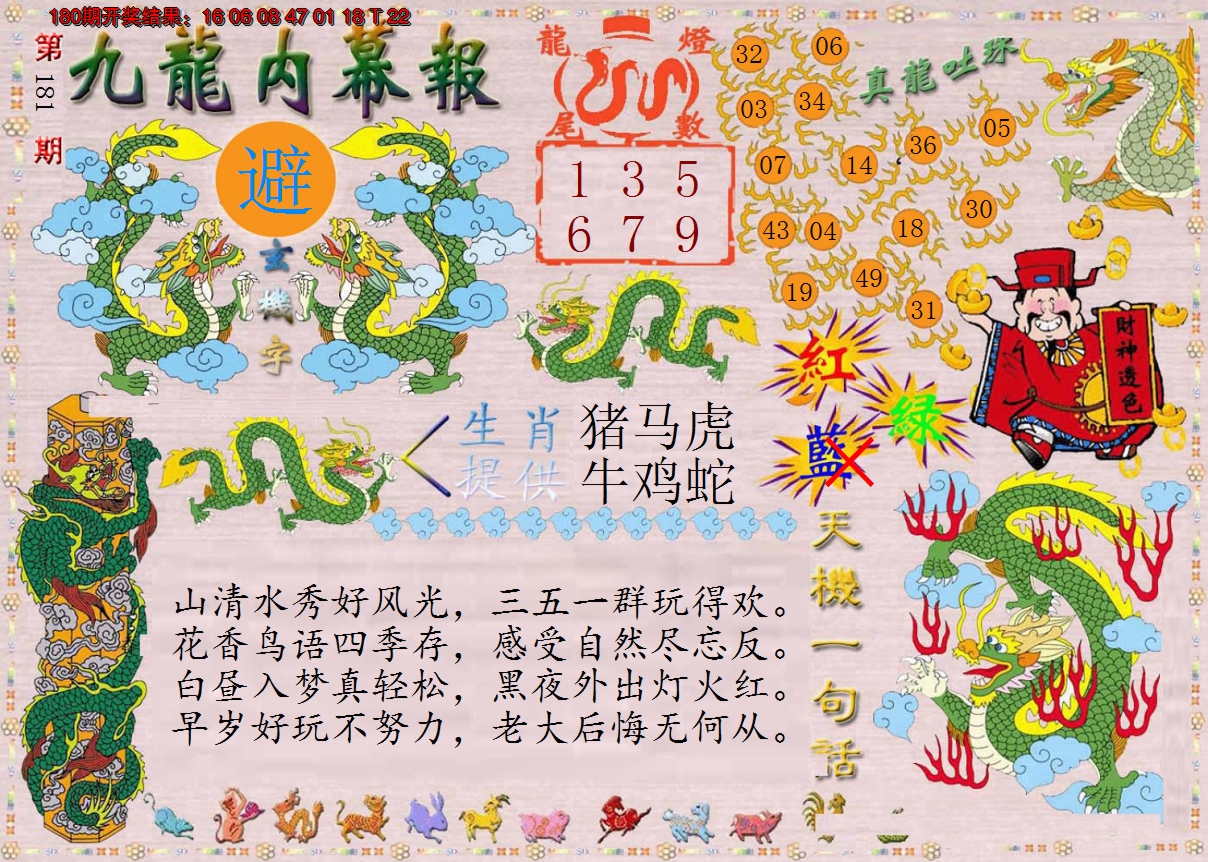 180期开奖结果：16 06 08 47 01 18 T 22
第181期
九龍内幕報
避
玄機字
龍燈
尾數
1 3 5
6 7 9
真龍吐珠
32 06
03 34
07 14 36 05
43 04 18 30
19 49 31
財神透色
紅
綠
藍
生肖
提供
猪马虎
牛鸡蛇
天機一句話
山清水秀好风光，三五一群玩得欢。
花香鸟语四季存，感受自然尽忘反。
白昼入梦真轻松，黑夜外出灯火红。
早岁好玩不努力，老大后悔无何从。